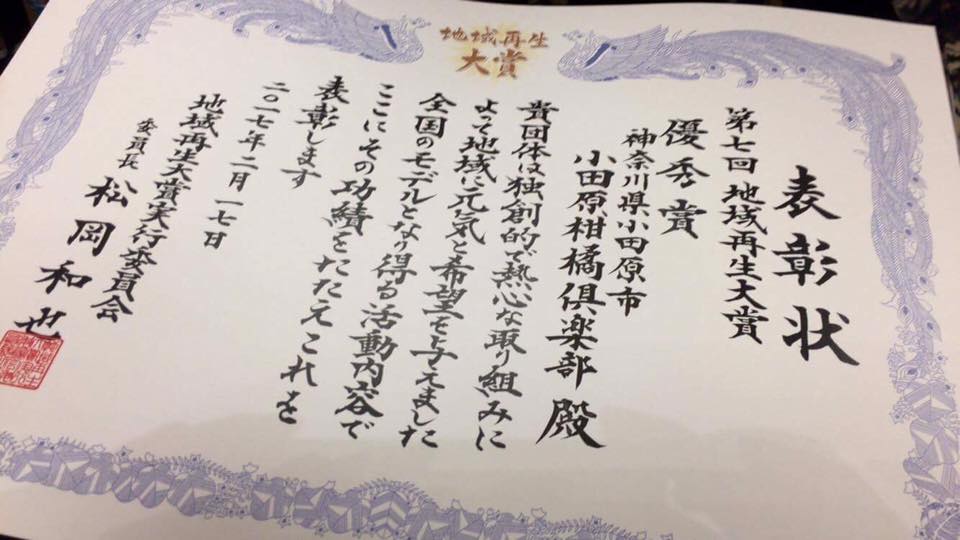 地域再生
大賞
表彰状
第七回 地域再生大賞
優秀賞
神奈川県小田原市
小田原柑橘倶楽部 殿
貴団体は独創的で熱心な取り組みに
よって地域に元気と希望を与えました
全国のモデルとなり得る活動内容で
ここにその功績をたたえこれを
表彰します
二〇一七年二月一七日
地域再生大賞実行委員会
委員長 松岡和也